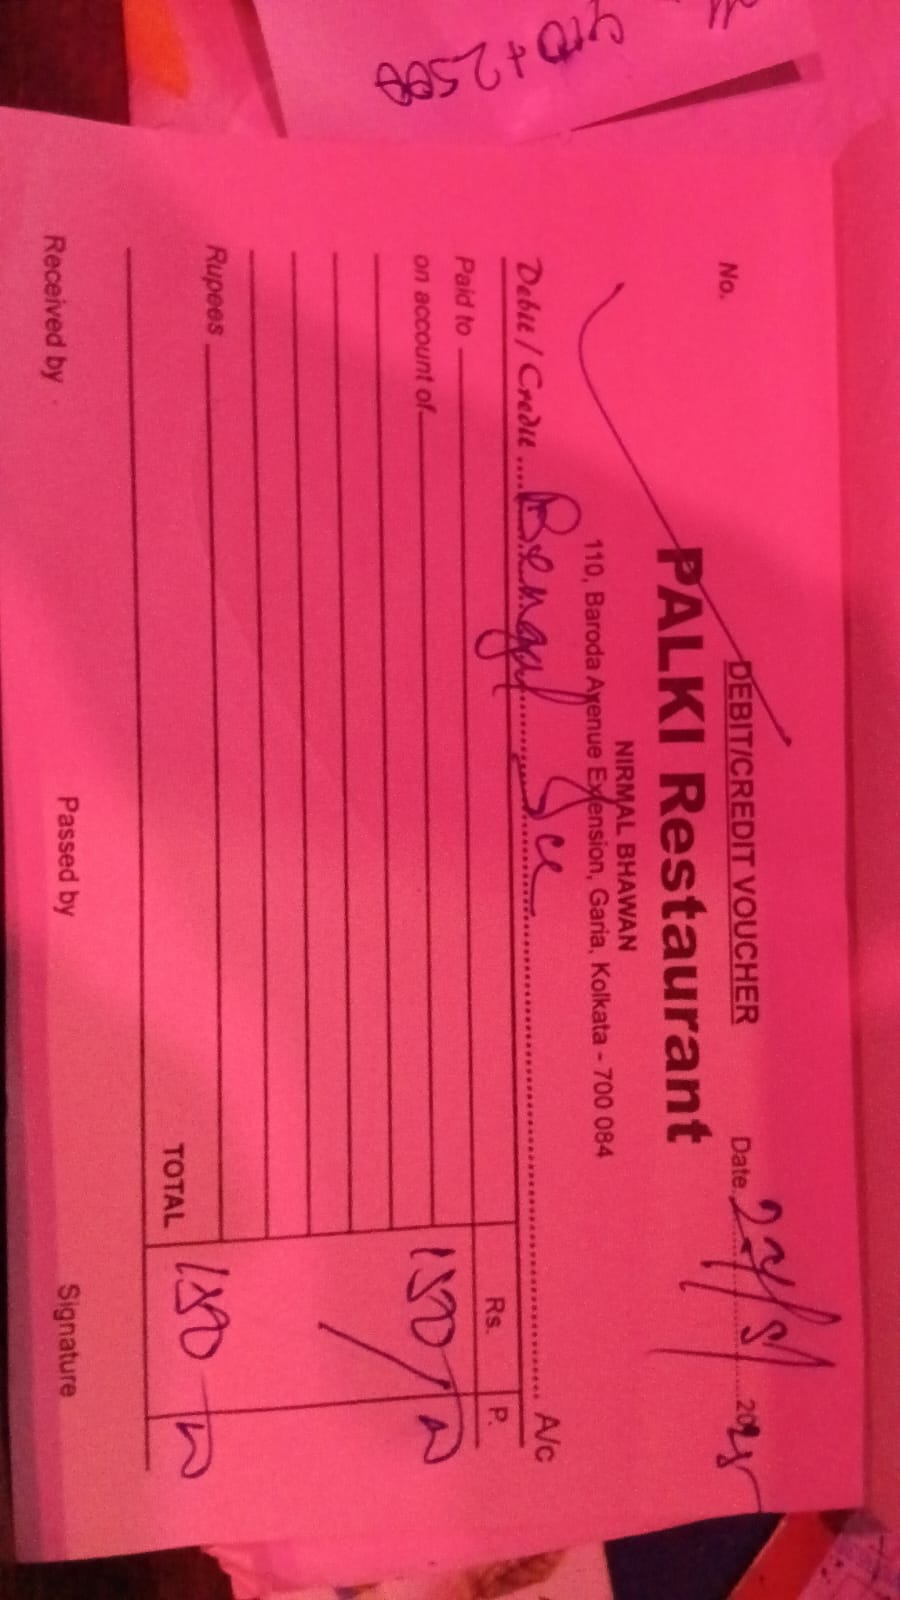 DEBIT/CREDIT VOUCHER
No.
Date 27/5/ 2025
PALKI Restaurant
NIRMAL BHAWAN
110, Baroda Avenue Extension, Garia, Kolkata - 700 084
Debit / Credit Bengal Ice A/c
Rs. P.
Paid to
on account of 150/
Rupees
TOTAL 150
Received by
Passed by
Signature
+ 2500